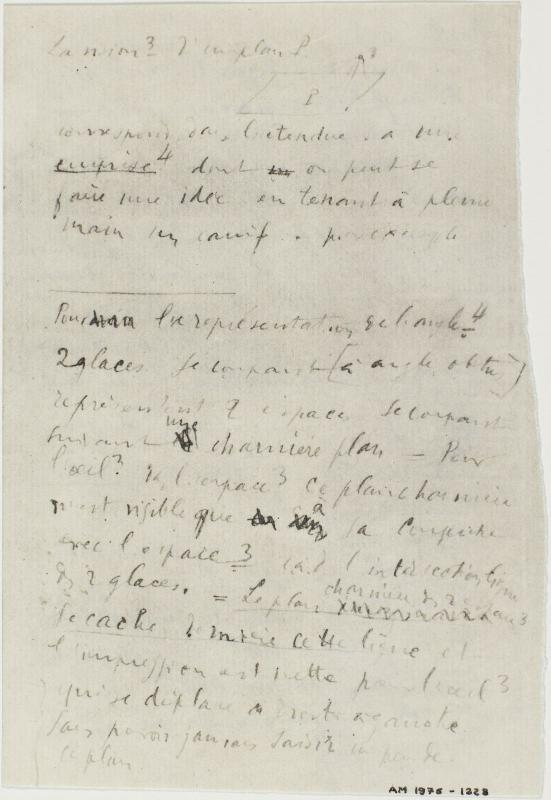 La vision³ d'un plan P.
3
P
correspond dans l'étendue⁴ à une
emprise⁴ dont on peut se
faire une idée en tenant à pleine
main un canif. par exemple
Pour une représentation de l'angle⁴
2 glaces se coupant (à angle obtu)
représentent 2 espaces se coupant
suivant une charnière plan — Pour
l'œil³ dans l'espace³ ce plan charnière
n'est visible que à sa coupure
avec l'espace 3 càd l'intersection ligne
des 2 glaces. = Le plan charnière des 2 espaces³
se cache derrière cette ligne et
l'impression est nette pour l'œil³
qui se déplace de droite à gauche
sans pouvoir jamais saisir un peu de
ce plan
AM 1976 - 1228